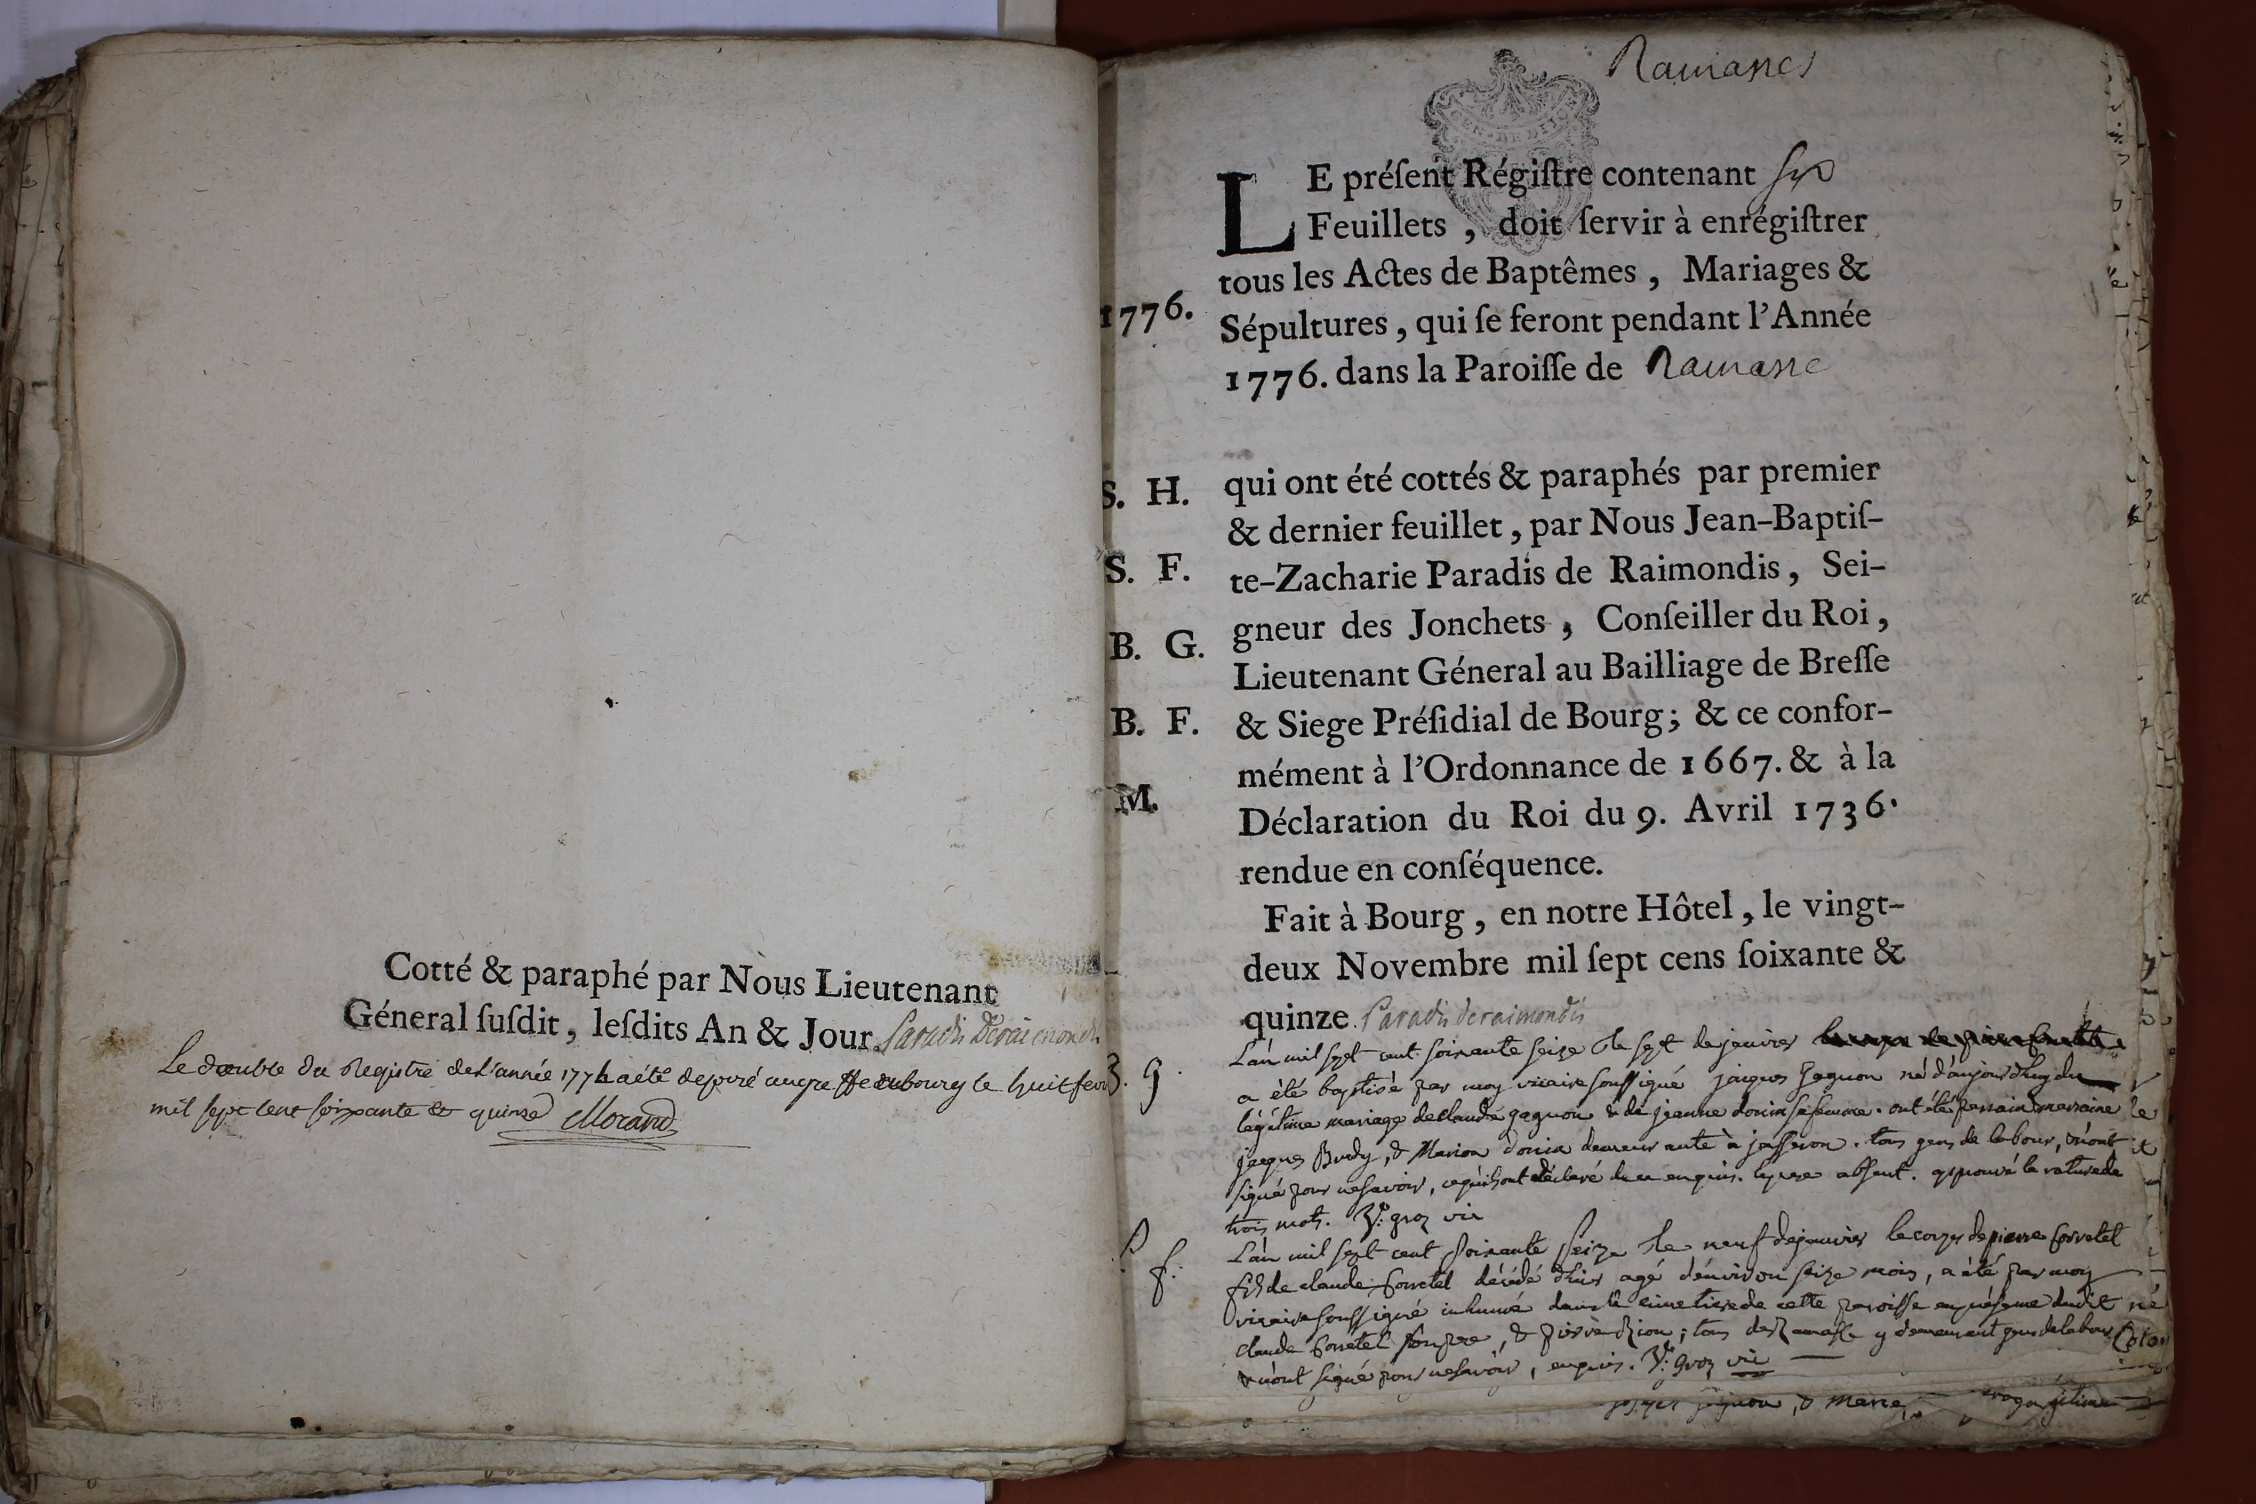 Cotté & paraphé par Nous Lieutenant
Géneral ſuſdit, leſdits An & Jour. Paradis Deraimondis
Le double du Registre de l'année 1774 a été deposé au greffe de bourg le huit fevr
mil sept cent soixante & quinze Morand
Ramasse
LE préſent Régiſtre contenant six
Feuillets, doit ſervir à enrégiſtrer
tous les Actes de Baptêmes, Mariages &
1776.
Sépultures, qui ſe feront pendant l'Année
1776. dans la Paroiſſe de Ramasse
S. H.
qui ont été cottés & paraphés par premier
& dernier feuillet, par Nous Jean-Baptiſ-
S. F.
te-Zacharie Paradis de Raimondis, Sei-
gneur des Jonchets, Conſeiller du Roi,
B. G.
Lieutenant Géneral au Bailliage de Breſſe
B. F.
& Siege Préſidial de Bourg; & ce confor-
mément à l'Ordonnance de 1667. & à la
M.
Déclaration du Roi du 9. Avril 1736.
rendue en conſéquence.
Fait à Bourg, en notre Hôtel, le vingt-
deux Novembre mil ſept cens ſoixante &
quinze. Paradis deraimondis
L'an mil sept cent soixante seize & le sept de janvier
B. g.
a été baptisé par moy vicaire soussigné jacques gagnon né d'aujourd'huy du
légitime mariage de claude gagnon & de jeanne donin sa femme. ont été parrain marraine
jacques Brudy, & Marion donin demeurante à jasseron. tous gens de labour, & n'ont
signé pour ne savoir, ce qu'ils ont déclaré de ce enquis. le pere absent. approuvé la rature de
trois mots. gros vic
L'an mil sept cent soixante seize & le neuf de janvier le corps de pierre Corretel
S. f.
fils de claude Corretel décédé d'hier agé d'environ seize mois, a été par moy
vicaire soussigné inhumé dans le cimetiere de cette paroisse en présence dudit
claude Corretel son pere, & pierre Rion; tous de Ramasse y demeurant gens de labour
& n'ont signé pour ne savoir, enquis. gros vic